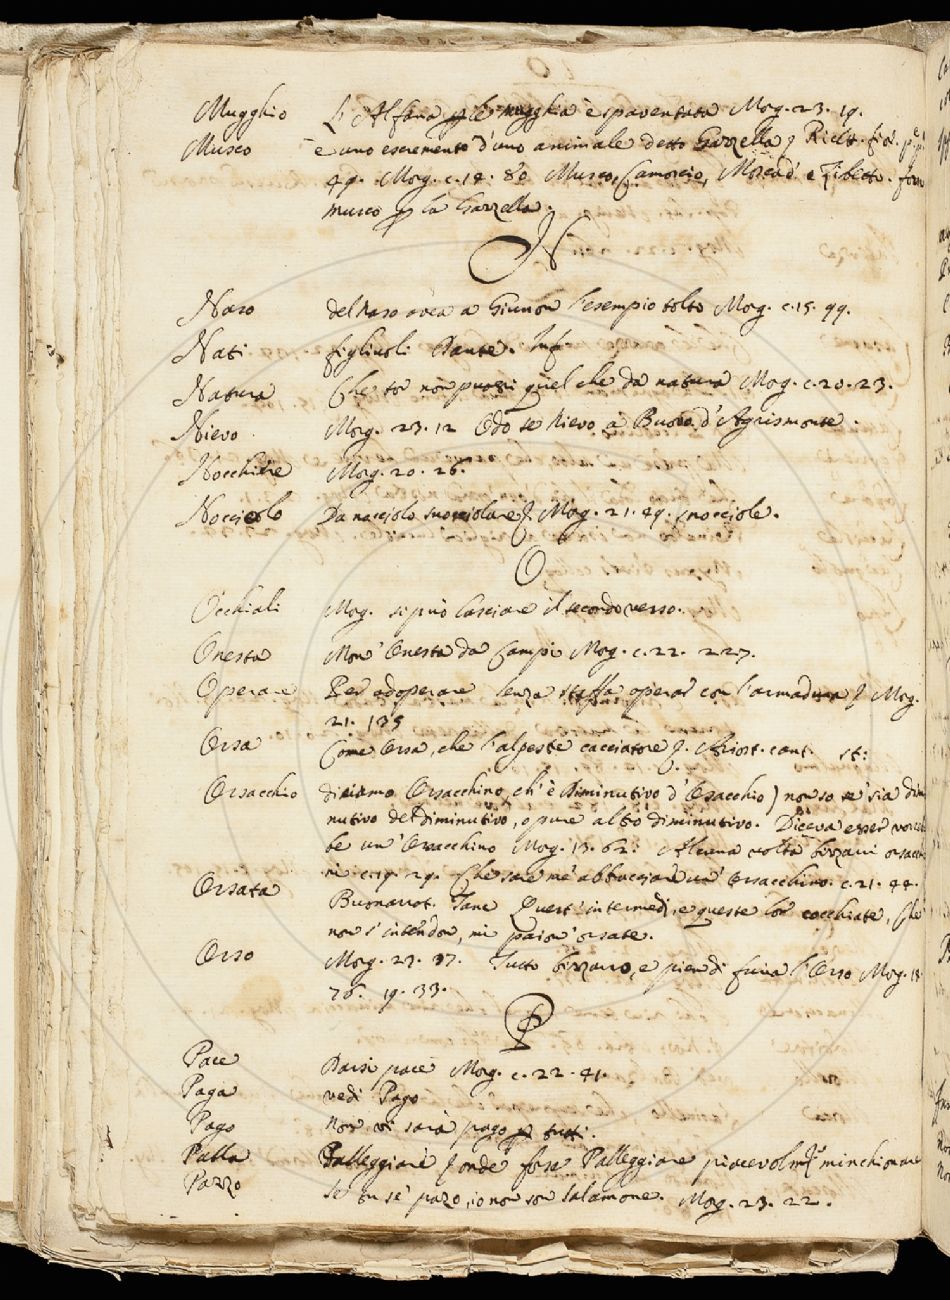 Mugghio L'Alfana che mugghia è spaventata Morg. 23. 19.
Musco è uno escremento d'uno animale detto Gazzella Ricett. fior.
49. Morg. c. 14. 80 Musco, Camoscio, Moscad. e Zibetto. forse
musco la Gazzella.
N
Naso del naso avea a Giunon l'esempio tolto Morg. c. 15. 99.
Nati figliuoli Dante. Inf.
Natura Che tor non puossi quel che dà natura Morg. c. 20. 23.
Nievo Morg. 23. 12 Odo se Nievo a Buovo d'Agrismonte.
Nocchiere Morg. 20. 26.
Nocciolo Da nocciolo snocciolare Morg. 21. 49. snocciole.
O
Occhiali Morg. si può lasciare il secondo verso.
Onesta Mon' Onesta da Campi Morg. c. 22. 227.
Operare Per adoperare senza staffa operar con l'armadura Morg.
21. 135
Orsa Come Orsa, che l'alpestre cacciatore Ariost. cant. st:
Orsacchio diciamo Orsacchino, ch'è diminutivo d'Orsacchio) non so se sia dimi
nutivo del diminutivo, o pure altro diminutivo. Diceva esser
be un' Orsacchino Morg. 13. 62. Alcuna volta bizzarri orsacchi
ni c. 19. 29. Che c. 21. 44.
Orsata Buonarrot. Tanc Quest'intermedi, e queste lor cocchiate, Che
non s'intendon, mi paion' orsate.
Orso Morg. 23. 37. Tutto bizzarro, e pien di furia l'Orso Morg. 18
76. 19. 33.
P
Pace Darsi pace Morg. c. 22. 41.
Paga vedi Pago
Pago non vi sarà pago tutti.
Palla Palleggiare onde forse Palleggiare minchionare
Pazzo Se tu se' pazo, io non son Salamone. Morg. 23. 22.